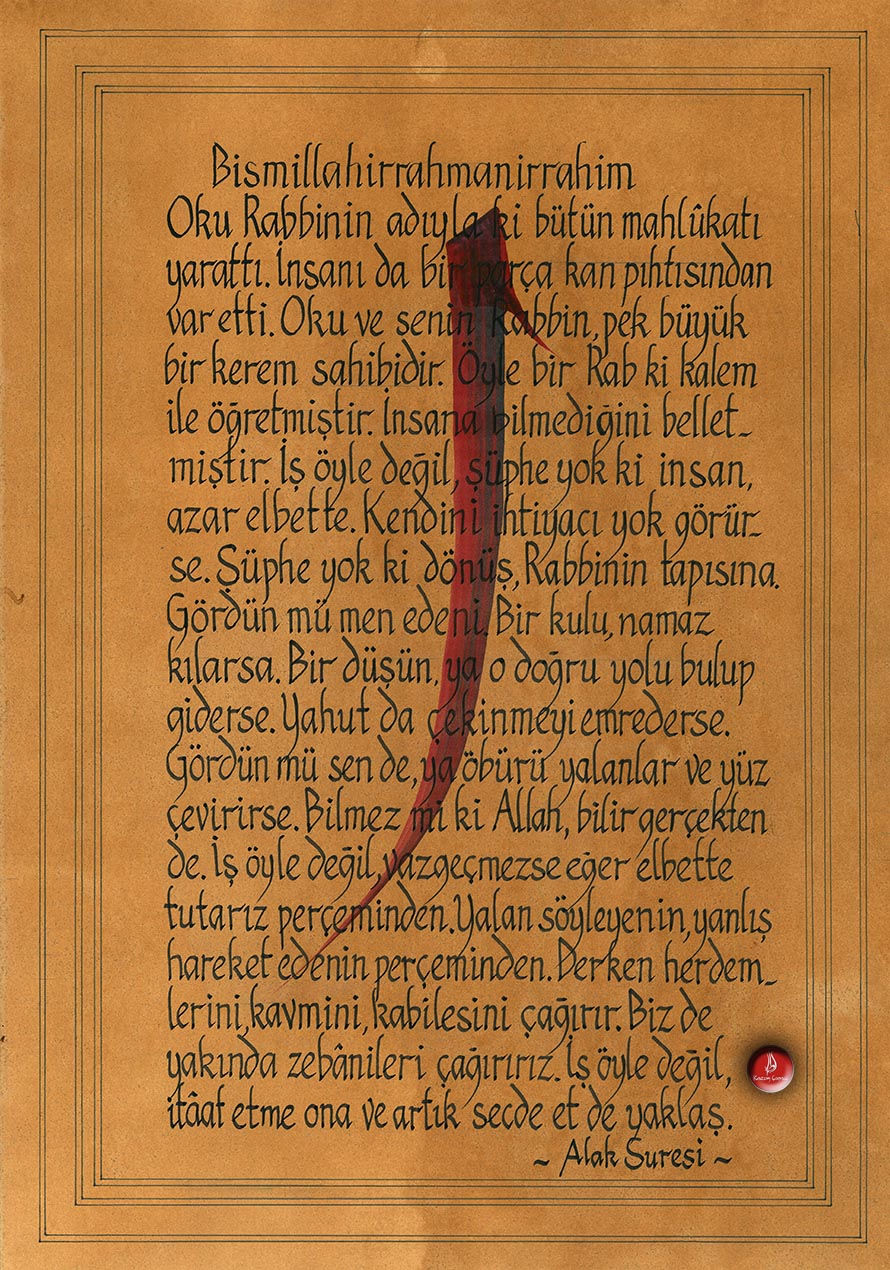 Bismillahirrahmanirrahim
Oku Rabbinin adıyla ki bütün mahlûkatı
yarattı. İnsanı da bir parça kan pıhtısından
var etti. Oku ve senin Rabbin, pek büyük
bir kerem sahibidir. Öyle bir Rab ki kalem
ile öğretmiştir. İnsana bilmediğini bellet-
miştir. İş öyle değil, şüphe yok ki insan,
azar elbette. Kendini ihtiyacı yok görür-
se. Şüphe yok ki dönüş, Rabbinin tapısına.
Gördün mü men edeni. Bir kulu, namaz
kılarsa. Bir düşün, ya o doğru yolu bulup
giderse. Yahut da çekinmeyi emrederse.
Gördün mü sen de, ya öbürü yalanlar ve yüz
çevirirse. Bilmez mi ki Allah, bilir gerçekten
de. İş öyle değil, vazgeçmezse eğer elbette
tutarız perçeminden. Yalan söyleyenin, yanlış
hareket edenin perçeminden. Derken herdem-
lerini, kavmini, kabilesini çağırır. Biz de
yakında zebânileri çağırırız. İş öyle değil,
itâat etme ona ve artık secde et de yaklaş.
~ Alak Suresi ~